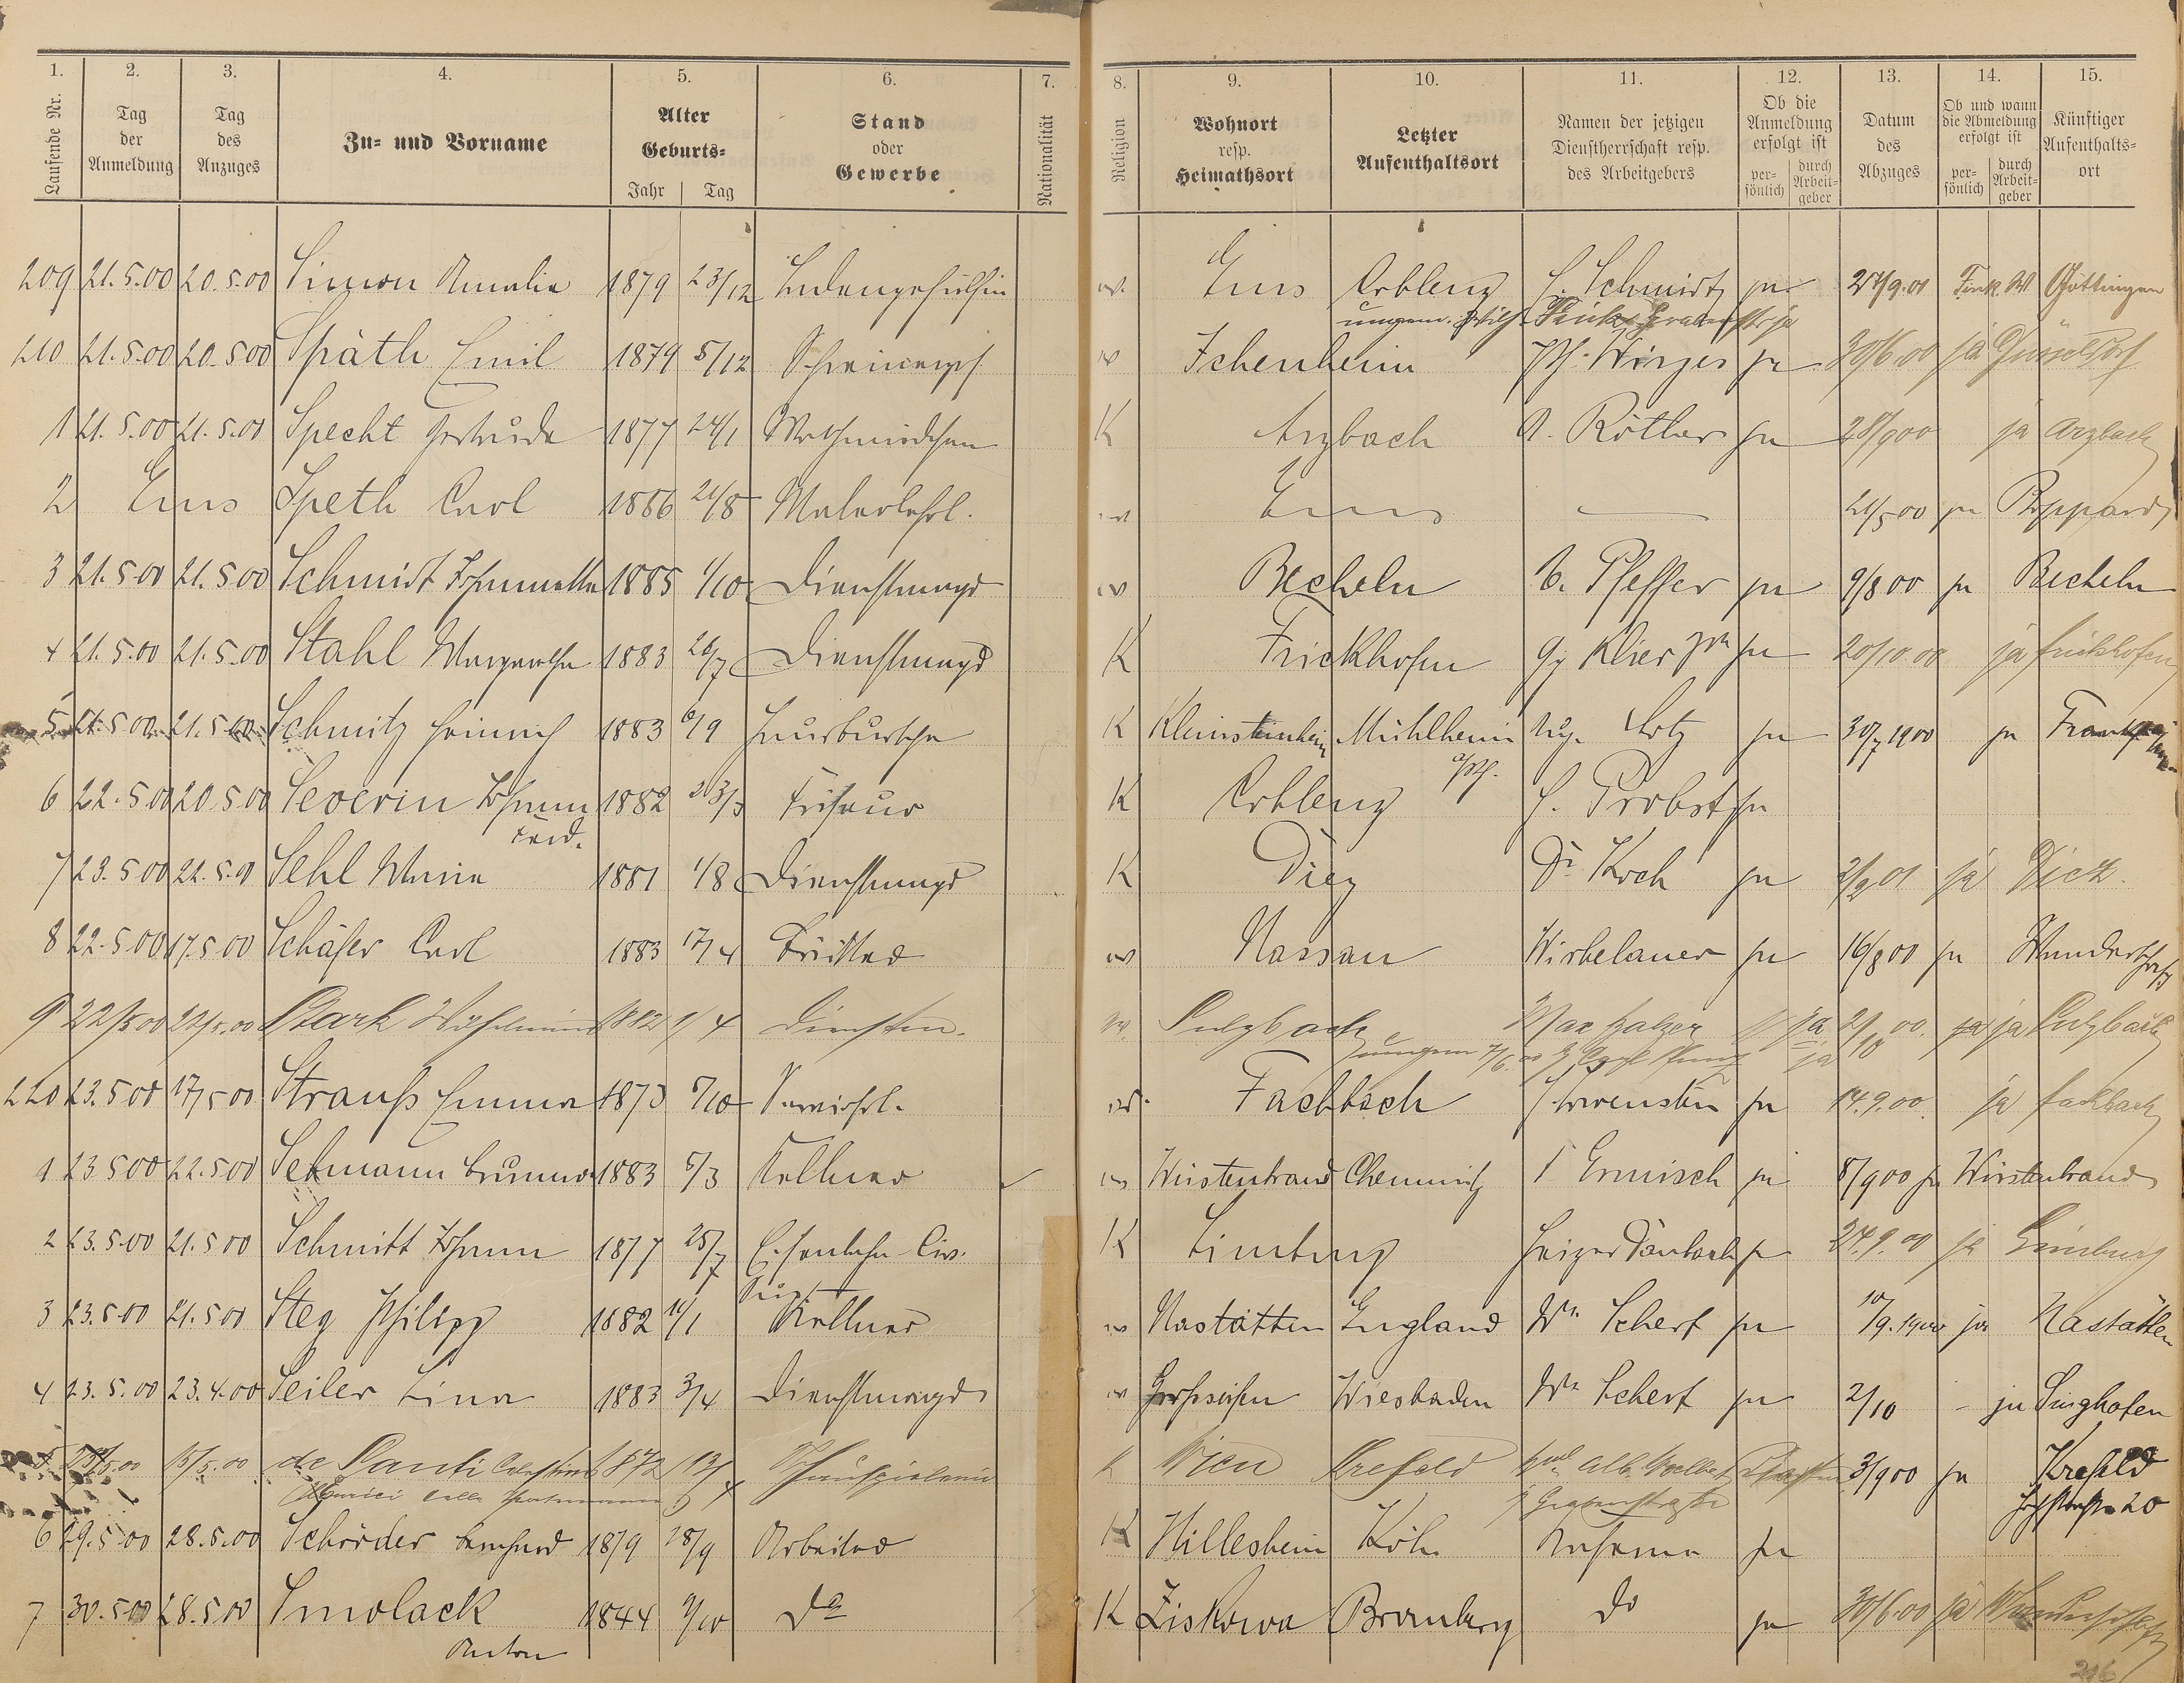 1. 2. 3. 4. 5. 6. 7. 8. 9. 10. 11. 12. 13. 14. 15.
Laufende Nr. Tag der Anmeldung Tag des Anzuges Zu- und Vorname Alter Geburts- Jahr Tag Stand oder Gewerbe Nationalität Religion Wohnort resp. Heimathsort Letzter Aufenthaltsort Namen der jetzigen Dienstherrschaft resp. des Arbeitgebers Ob die Anmeldung erfolgt ist persönlich durch Arbeitgeber Datum des Abzuges Ob und wann die Abmeldung erfolgt ist persönlich durch Arbeitgeber Künftiger Aufenthaltsort
209 21.5.00 20.5.00 Simon Amalie 1879 23/12 Ladengehülfin ev. Ems Coblenz Schmidt ja 27/9.01 Göttingen
210 21.5.00 20.5.00 Späth Emil 1879 5/12 Schreinergeh. ev Ichenheim Ph. Wirges ja 30/6.00 ja Düsseldorf
1 21.5.00 21.5.00 Specht Gertrude 1877 24/1 K Arzbach A. Röther ja 28/9 00 ja Arzbach
2 Ems Speth Carl 1886 21/8 Malerlehrl. ev Ems — 21/5 00 ja Boppard
3 21.5.00 21.5.00 Schmidt Johannette 1885 1/10 Dienstmagd ev Becheln C. Pfeffer ja 9/8 00 ja Becheln
4 21.5.00 21.5.00 Stahl Margarethe 1883 26/7 Dienstmagd K Frickhofen Gg Klier ja 20/10.00 ja Frickhofen
5 21.5.00 21.5.00 Schmitz Heinrich 1883 6/9 Hausbursche K Kleinsteinheim Mühlheim Aug. Lotz ja 30/7 1900 ja
6 22.5.00 20.5.00 Severin Johann Ferd. 1882 23/3 Friseur K Coblenz Probst ja
7 23.5.00 22.5.00 Sehl Maria 1881 1/8 Dienstmagd K Diez Dr. Koch ja 2/2 01 ja Diez.
8 22.5.00 17.5.00 Schäfer Carl 1883 17/4 ev Nassau Wirbelauer ja 16/8 00 ja Wanderschaft
9 22/5.00 22/5.00 Stark Wilhelmine 1882 1/4 Dienstm. ev. Sulzbach Max Balzer ja 2/10 00. ja ja Sulzbach
220 23.5.00 17/5 00 Strauß Emma 1873 5/10 ev. Fachbach Löwenstein ja 14.9.00. ja Fachbach
1 23 5 00 22.5 00 Sehmann Brunno 1883 5/3 Kellner ev Wüstenbrand Chemnitz Ermisch ja 8/9 00 ja Wüstenbrand
2 23.5.00 21.5 00 Schmitt Johann 1877 25/7 Eisenbahn Civ. Sup. K Limburg Heizer Daubach ja 24.9.00 ja Limburg
3 23.5.00 21.5 00 Steg Philipp 1882 11/1 Kellner ev Nastätten England Wn Scherf ja 10/9.1900 ja Nastätten
4 23.5.00 23.4.00 Seiler Lina 1883 3/4 Dienstmagd ev Wiesbaden Wn Scherf ja 2/10 - ja Singhofen
5 15/5.00 de Santi 1872 Schauspielerin K Wien Krefeld Grabenstraße 3/9 00 ja Krefeld 20
6 29.5.00 28.5.00 Schröder Bernhard 1879 28/9 Arbeiter K Hillesheim Köln ja
7 30.5.00 28.5.00 Smolack Anton 1844 9/10 do K Ziskowa Bromberg do ja 30/6.00 ja Wanderschaft
216